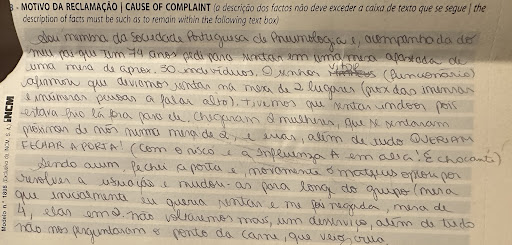 3 - MOTIVO DA RECLAMAÇÃO | CAUSE OF COMPLAINT (a descrição dos factos não deve exceder a caixa de texto que se segue | the
description of facts must be such as to remain within the following text box)
Sou membro da Sociedade Portuguesa de Pneumologia e, acompanhada do
meu pai que tem 79 anos pedi para sentar em uma mesa afastada de
uma mesa de aprox. 30 indivíduos. O senhor (funcionário)
afirmou que devíamos sentar na mesa de 2 lugares (prox das imensas
e inúmeras pessoas a falar alto). Tivemos que sentar indoor pois
estava frio lá fora para ele. Chegaram 2 mulheres, que se sentaram
próximas de nós numa mesa de 2, e elas, além de tudo QUERIAM
FECHAR A PORTA! (com o risco e a Influenza A em alta! É chocante)
Sendo assim, fechei a porta e, novamente o Mateus optou por
resolver a situação e mudou-as para longe do grupo (mesa
que inicialmente eu queria sentar e me foi negada, mesa de
4, elas em 2. não voltaremos mais, um desserviço, além de tudo
não nos perguntaram o ponto da carne, que veio crua.
Modelo n.º 1898 (Exclusivo da INCM, S. A.) INCM